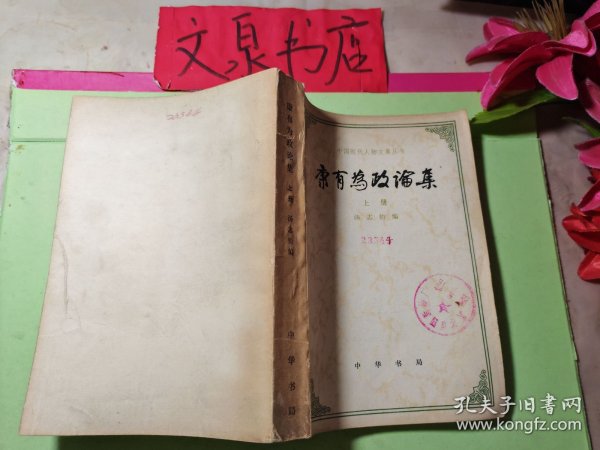 文泉书店
23564
康有为政论集 上册 汤志钧编
中华书局
中国近代人物文集丛书
康有為政論集
上册
汤志钧编
23564
中华书局
孔夫子旧书网
www.kongfz.com